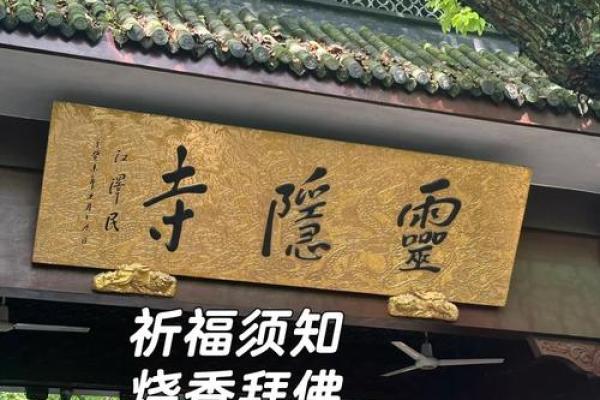 靈隱寺
江澤民
祈福须知
烧香拜佛